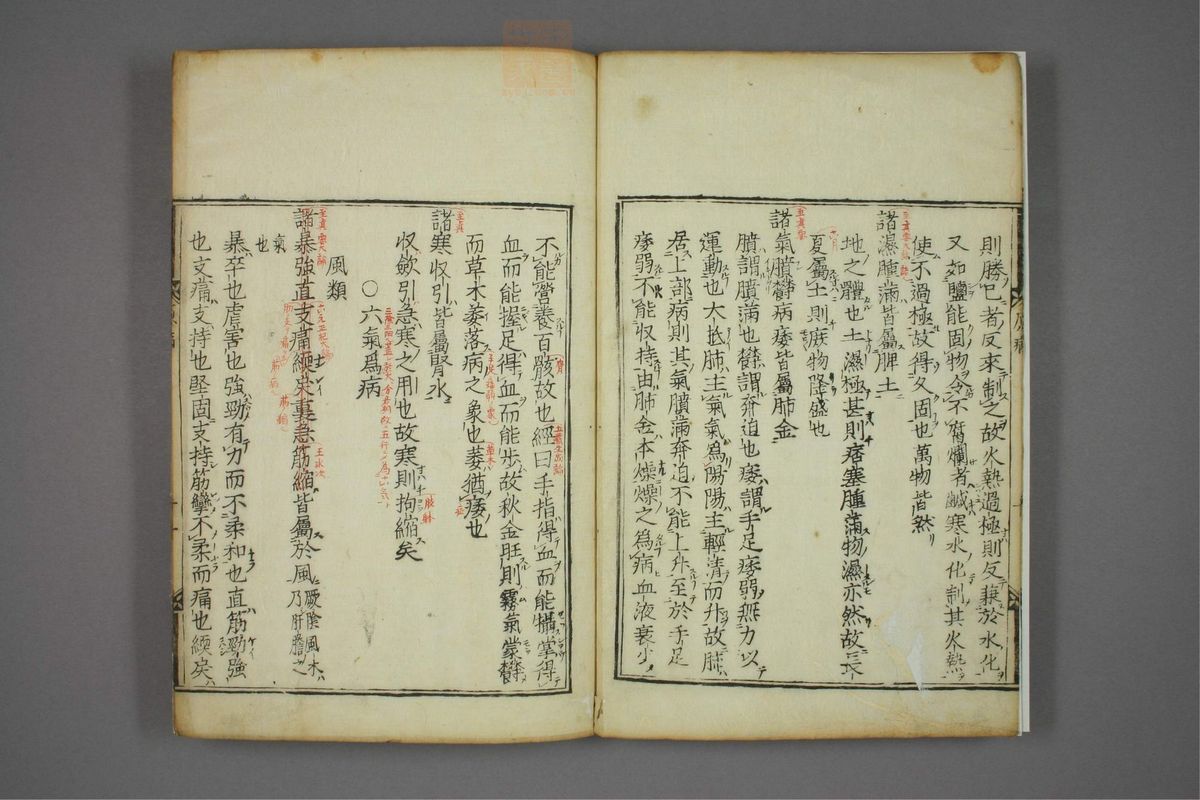 則勝已者反來制之故火熱過極則反兼於水化
又如鹽能固物令不腐爛者鹹寒水化制其火熱
使不過極故得久固也萬物皆然
諸濕腫滿皆屬脾土
地之體也土濕極甚則痞塞腫滿物濕亦然故長
夏屬土則庶物隆盛也
諸氣膹欝病痿皆屬肺金
膹謂膹滿也欝謂奔迫也痿謂手足痿弱無力以
運動也大抵肺主氣氣為陽陽主輕清而升故肺
居上部病則其氣膹滿奔迫不能上升至於手足
痿弱不能收持由肺金本燥燥之為病血液衰少
不能營養百骸故也經曰手指得血而能攝掌得
血而能握足得血而能步故秋金旺則霧氣蒙欝
而草木萎落病之象也萎猶痿也
諸寒收引皆屬腎水
收斂引急寒之用也故寒則拘縮矣
○六氣爲病
風類
諸暴強直支痛緛戾裏急筋縮皆屬於風厥陰風木乃肝膽之
氣也
暴卒也虐害也強勁有力而不柔和也直筋勁強
也支痛支持也堅固支持筋攣不柔而痛也緛戾